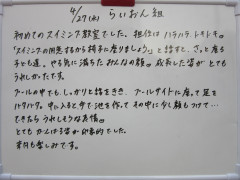 4/27(水) らいおん組
初めてのスイミング教室でした。担任はハラハラ、ドキドキ。
「スイミングの用意するから椅子に座りましょう。」と話すと、さっと座る
子ども達。やる気に満ちたみんなの顔。成長した姿がとても
うれしかったです。
プールの中でも、しっかりと話をきき、プールサイドに座って足を
バタバタ。中に入ると、手で池を作ってその中に少し顔もつけて…
できたらうれしそうな表情。
とてもがんばる姿が印象的でした。
来月も楽しみです。